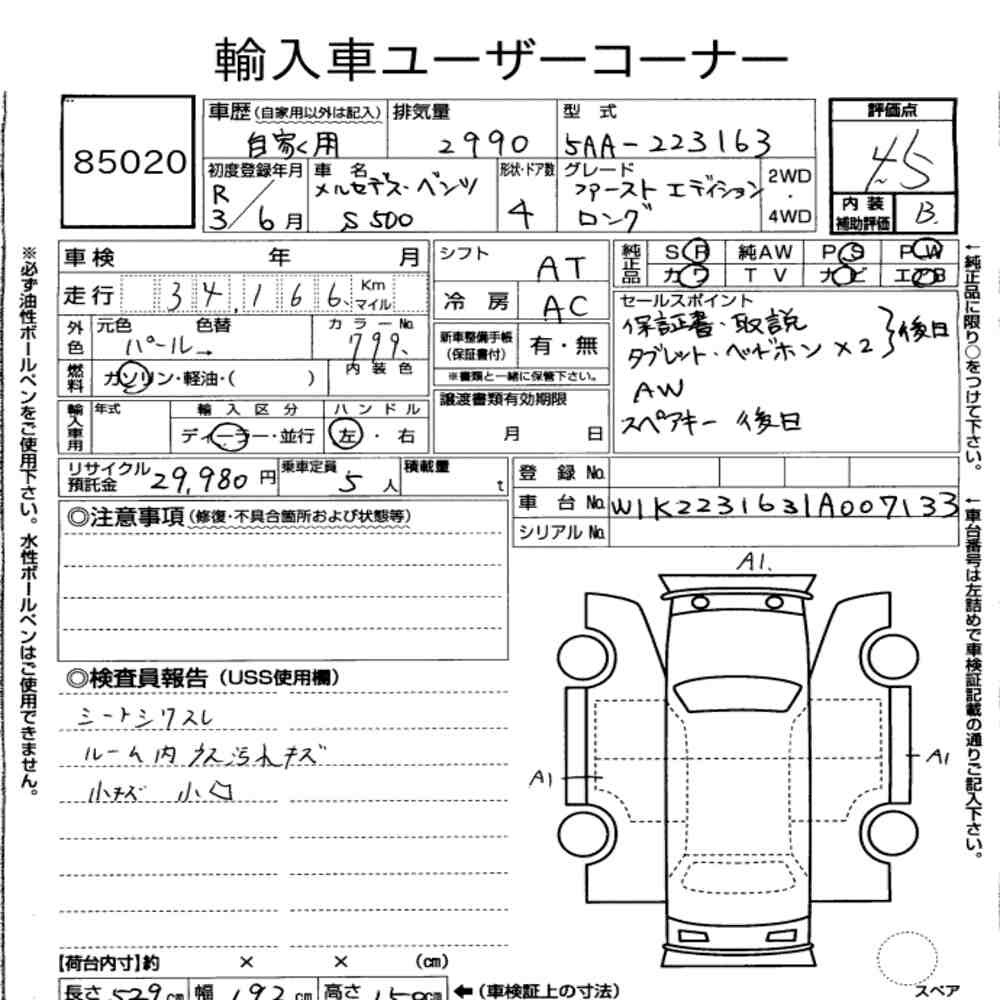 輸入車ユーザーコーナー
85020
車歴(自家用以外は記入) 排気量 型 式 評価点
自家用 2990 5AA-223163 4.5
初度登録年月 車 名 形状・ドア数 グレード 2WD ・ 4WD
R3/6月 メルセデス・ベンツ S500 4 ファーストエディション ロング
内装補助評価 B.
車検 年 月 シフト AT
純正品 SR 純AW PS PW
カワ TV ナビ エアB
走行 34,166 Km マイル 冷房 AC
セールスポイント
保証書・取説
タブレット・ヘッドホン×2 }後日
AW
スペアキー 後日
外色 元色 色替 カラーNo.
パール→ 799.
新車整備手帳(保証書付) 有・無
※書類と一緒に保管下さい。
燃料 ガソリン・軽油・( ) 内装色
譲渡書類有効期限
月 日
輸入車用 年式 輸入区分 ハンドル
ディーラー・並行 左・右
リサイクル預託金 29,980円 乗車定員 5人 積載量 t
登録No.
車台No. W1K2231631A007133
シリアルNo.
◎注意事項(修復・不具合箇所および状態等)
◎検査員報告(USS使用欄)
シートシワスレ
ルーム内 汚れキズ
小キズ 小凹
A1.
A1
A1
【荷台内寸】約 × × (cm)
長さ 529cm 幅 192cm 高さ 150cm ←(車検証上の寸法)
スペア
※必ず油性ボールペンをご使用下さい。水性ボールペンはご使用できません。
←純正品に限り○をつけて下さい。
←車台番号は左詰めで車検証記載の通りご記入下さい。